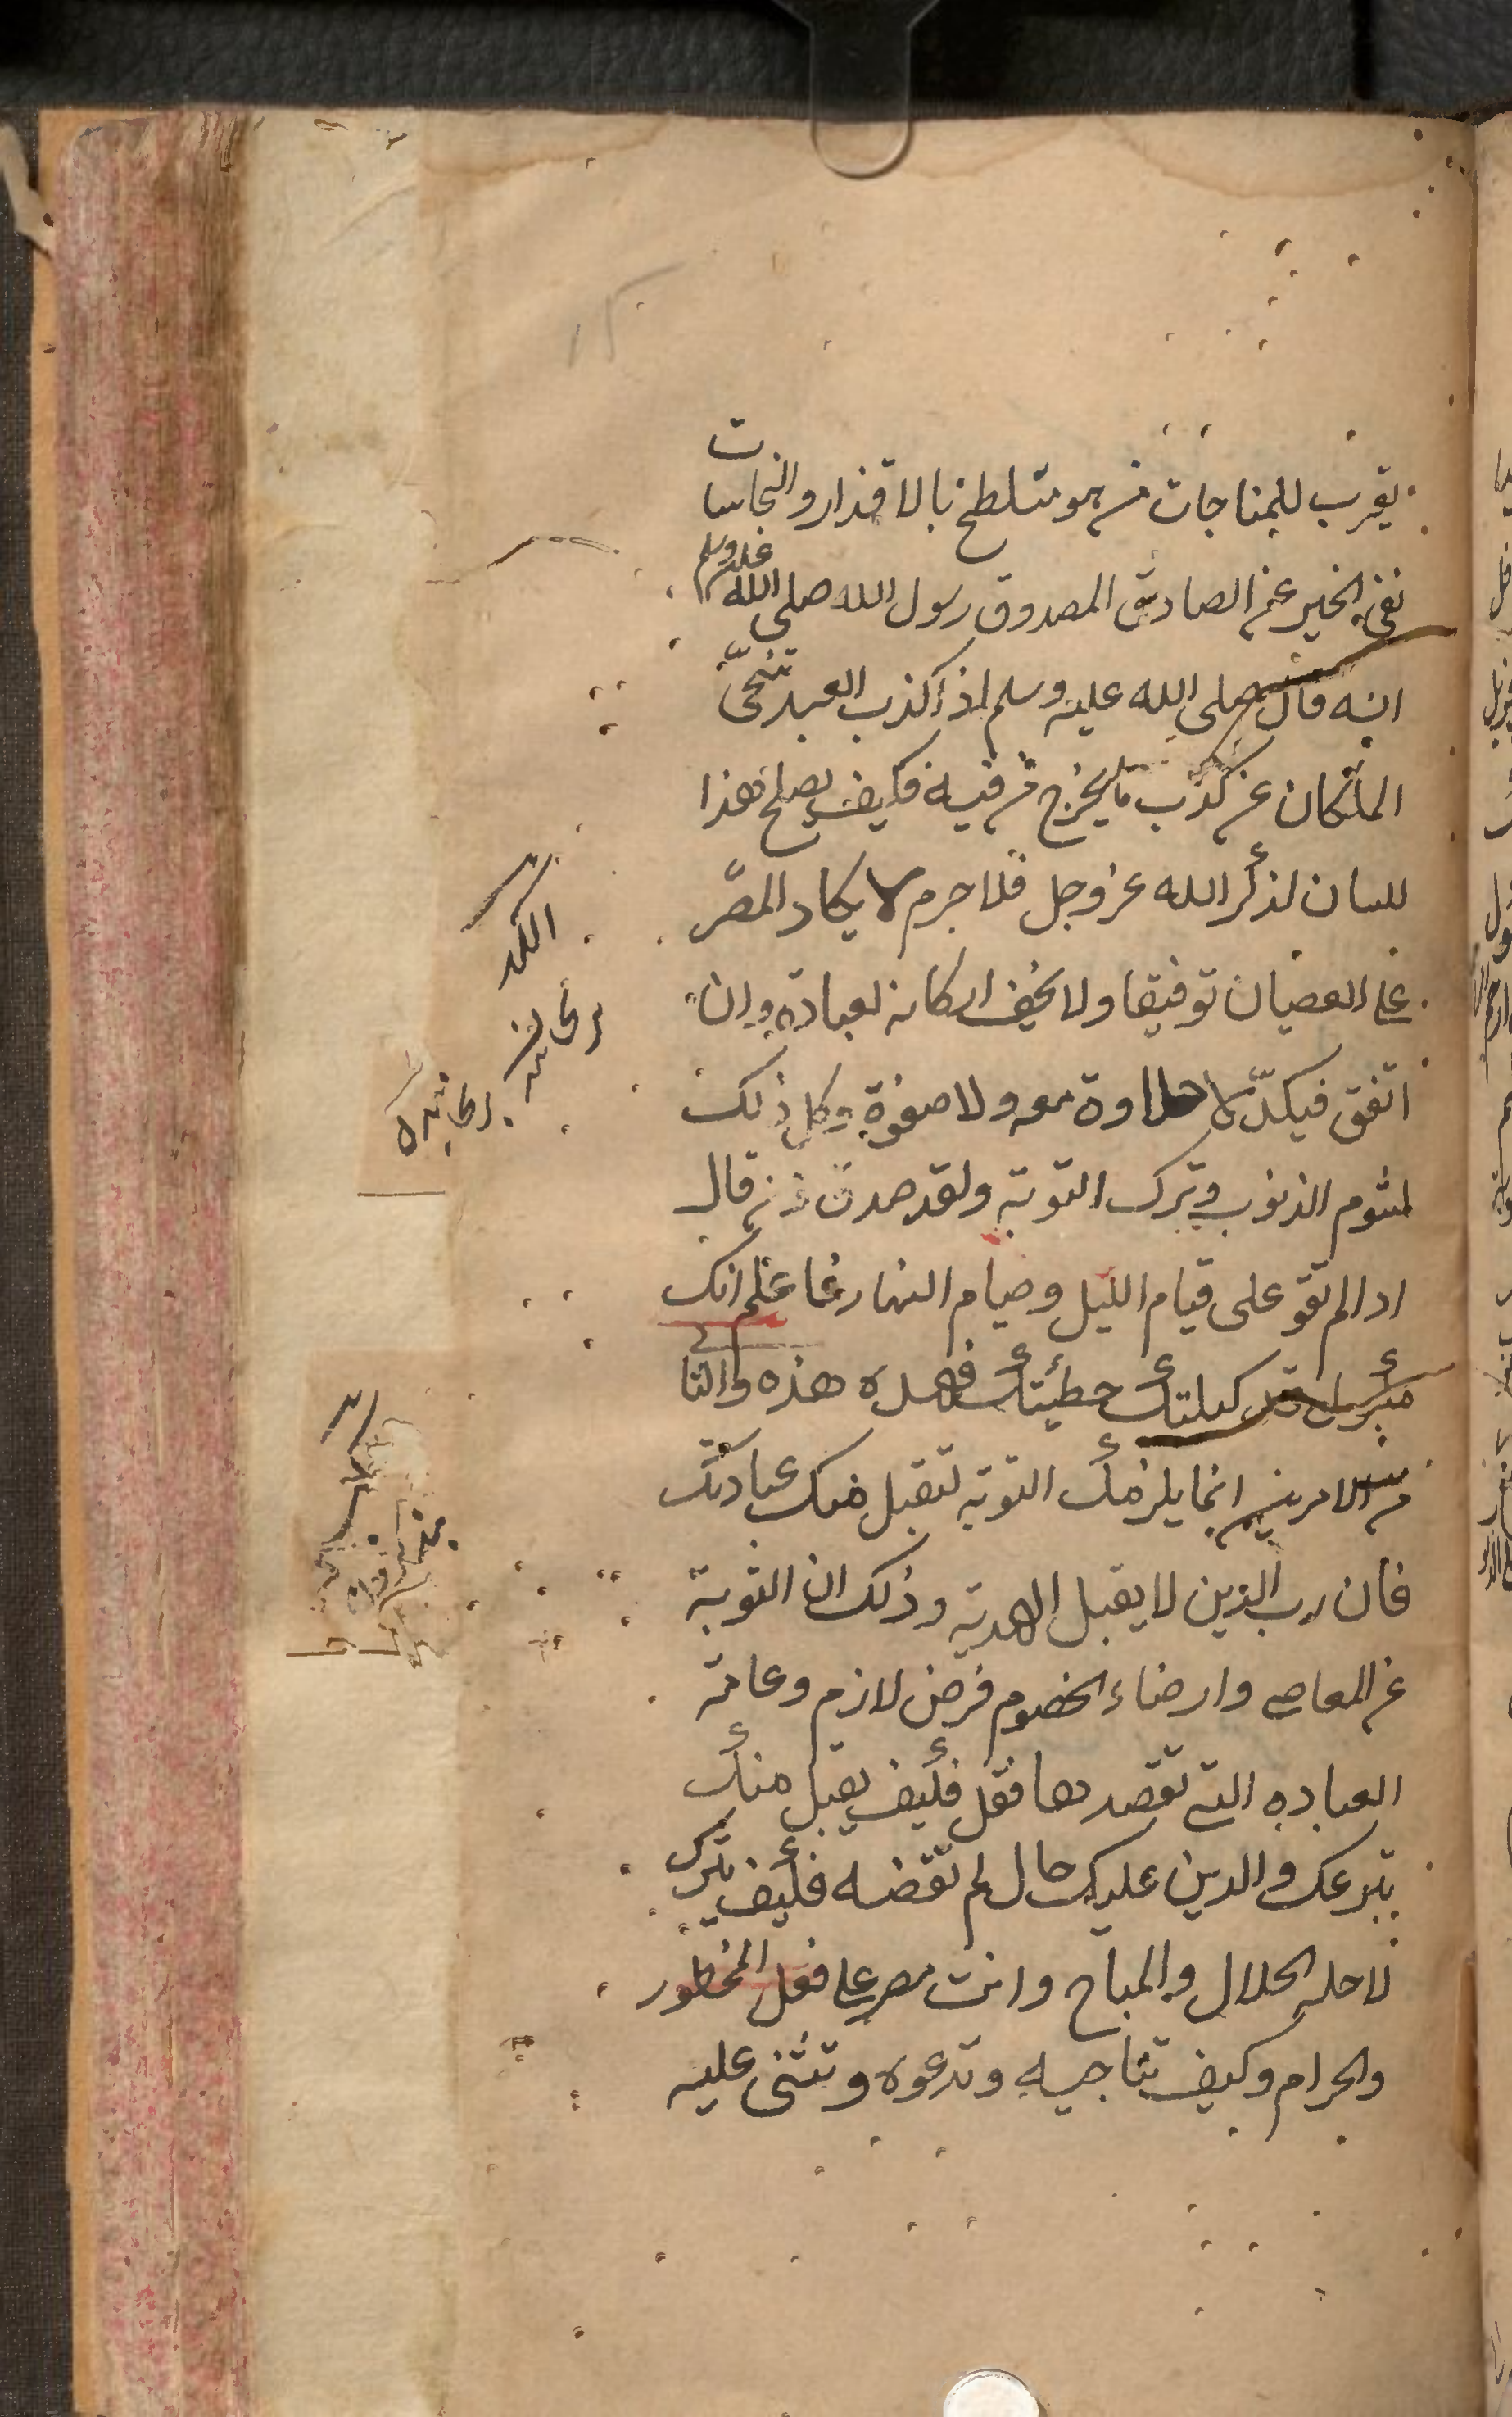 يقرب للمناجات من هو متلطخ بالاقذار والنجاسات
نفى الخبر عن الصادق المصدوق رسول الله صلى الله عليه وسلم
انه قال صلى الله عليه وسلم اذا كذب العبد تنحّى
الملكان عن كذب ما يخرج من فيه فكيف يصلح هذا
للسان لذكر الله عز وجل فلا جرم لا يكاد المصّر
على العصيان توفيقا ولا يخف اركانه لعبادته وان
اتفق فبكدّ لا حلاوة معه ولا صفوة وكل ذلك
لشوم الذنوب وترك التوبة ولقد صدق من قال
اذا لم تقو على قيام الليل وصيام النهار فاعلم انك
مكبول قد كبلتك خطيئتك فهذه هذه والثا
من الامرين انما يلزمك التوبة لتقبل منك عبادتك
فان رب الدين لا يقبل الهدية وذلك ان التوبة
عن المعاصى وارضاء الخصوم فرض لازم وعامة
العباده التى تقصدها نفل فكيف يقبل منك
تبرعك والدين عليك حال لم تقضه فكيف تترك
لاجله الحلال والمباح وانت مصر على فعل المحظور
والحرام وكيف تناجيه وتدعوه وتثنى عليه